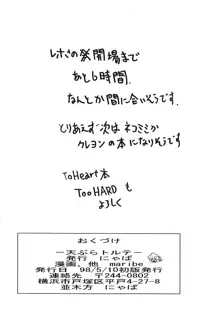 レオの発開場まで
あと6時間.
なんとか間に合いそうです.
とりあえず次はネコミミか
クレヨンの本になりそうです
ToHeart本
TooHARDも
よろしく
おくづけ
―天ぷらトルテ―
発行 にゃば
漫画、他 maribe
発行日 98/5/10初版発行
連絡先 〒244-0802
横浜市戸塚区平戸4-27-8
並木方 にゃば